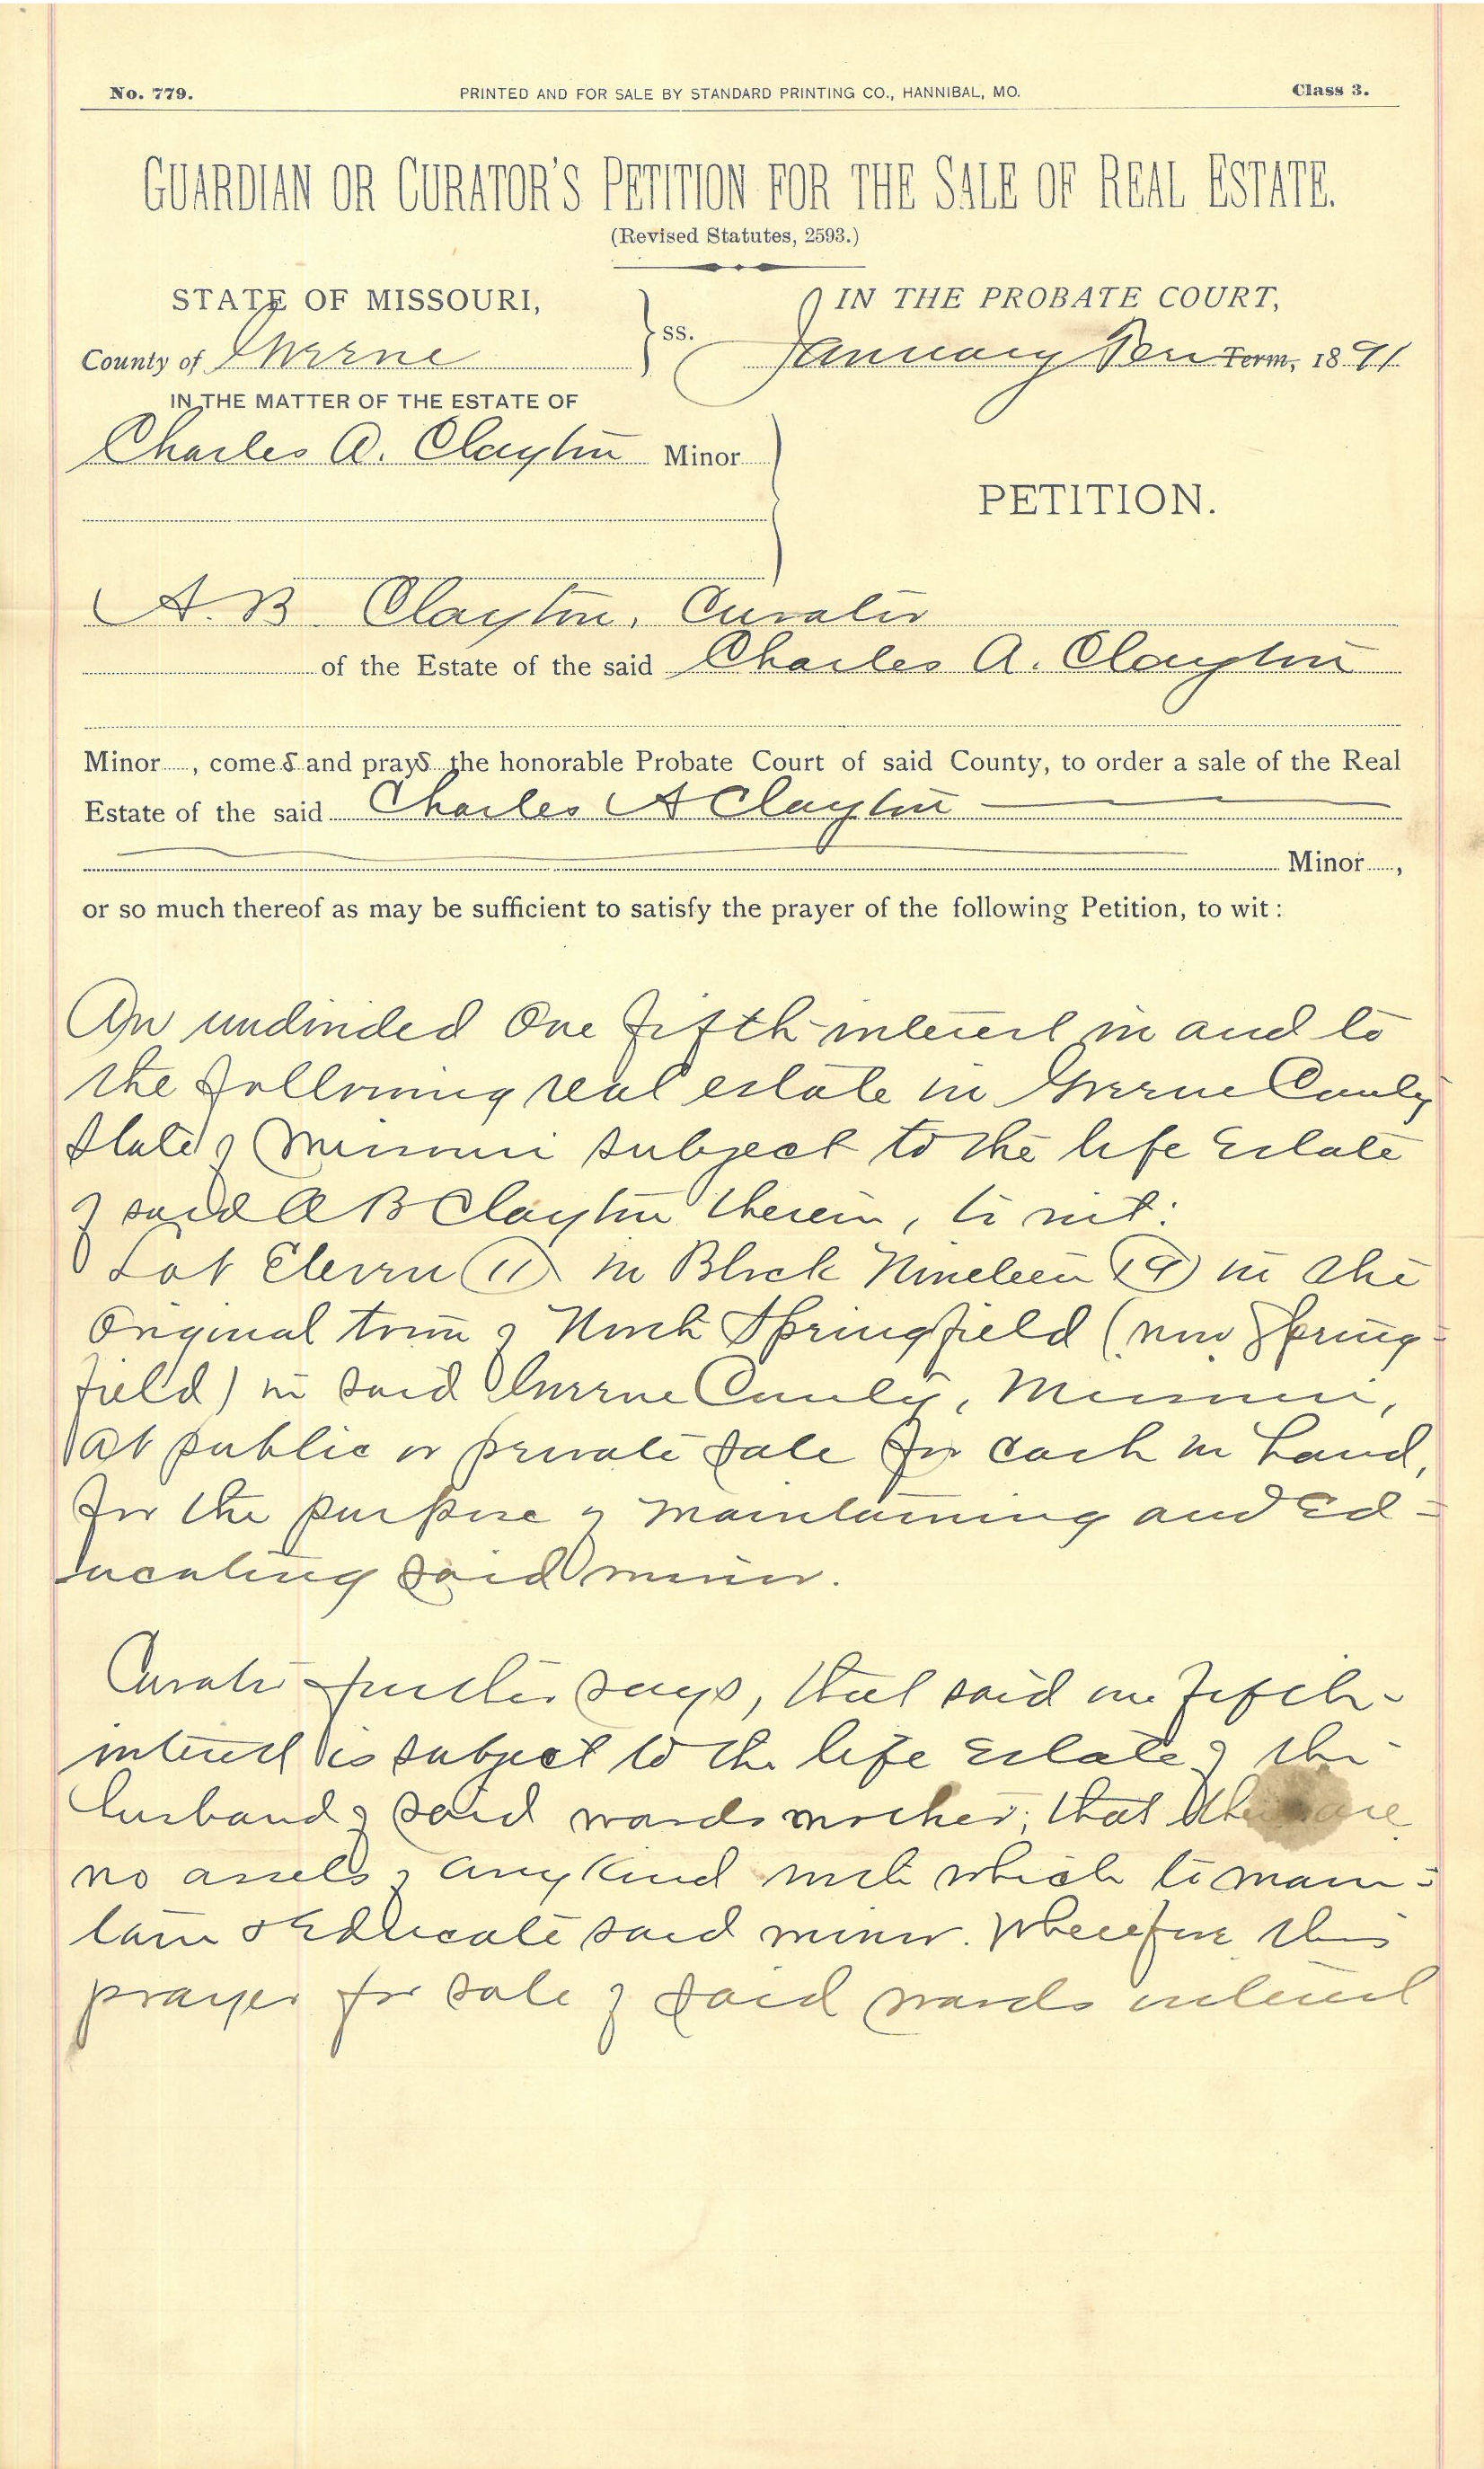 No. 779. PRINTED AND FOR SALE BY STANDARD PRINTING CO., HANNIBAL, MO. Class 3.
GUARDIAN OR CURATOR'S PETITION FOR THE SALE OF REAL ESTATE.
(Revised Statutes, 2593.)
STATE OF MISSOURI, } ss. IN THE PROBATE COURT,
County of Greene January Term, 1891
IN THE MATTER OF THE ESTATE OF
Charles A. Clayton Minor
PETITION.
A. B. Clayton, Curator
of the Estate of the said Charles A. Clayton
Minor, comes and prays the honorable Probate Court of said County, to order a sale of the Real
Estate of the said Charles A Clayton
Minor,
or so much thereof as may be sufficient to satisfy the prayer of the following Petition, to wit:
An undivided One fifth interest in and to
the following real estate in Greene County
State of Missouri subject to the life Estate
of said A B Clayton therein, to wit:
Lot Eleven (11) in Block Nineteen (19) in the
Original town of North Springfield (now Spring=
field) in said Greene County, Missouri,
at public or private sale for cash in hand,
for the purpose of maintaining and Ed=
ucating said minor.
Curator further says, that said one fifth
interest is subject to the life Estate of the
husband of said wards mother; that there are
no assets of any kind with which to main=
tain & Educate said minor. Wherefore this
prayer for sale of said wards interest